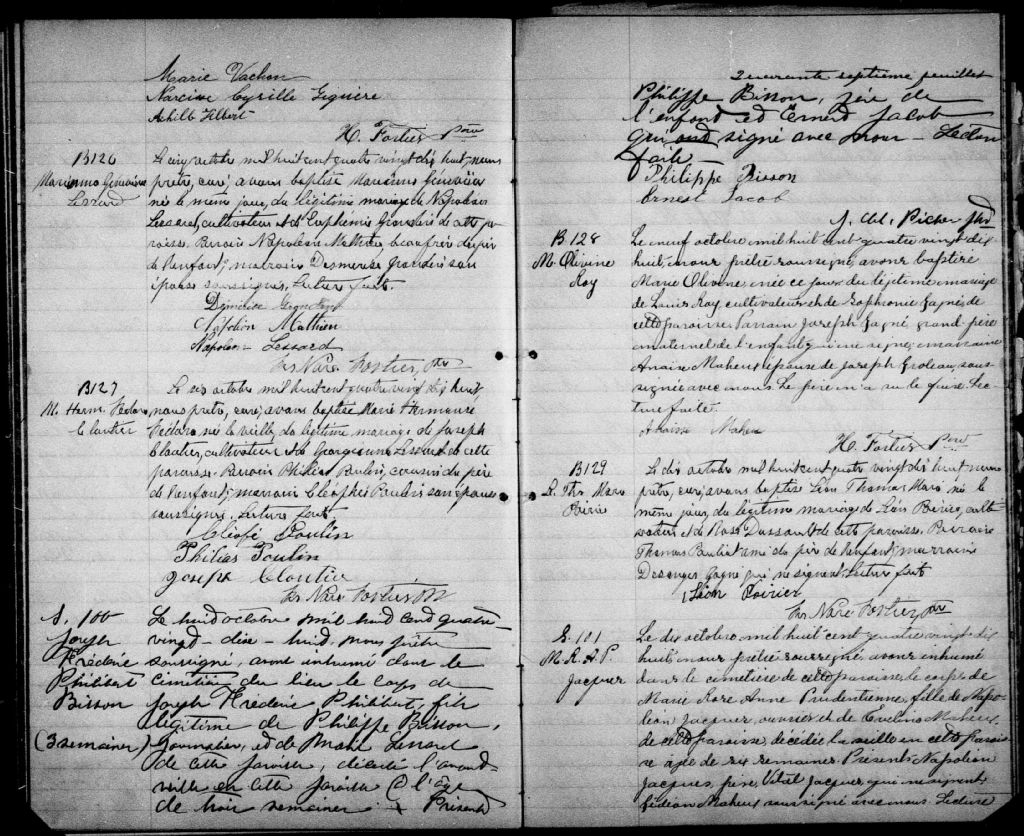 Marie Vachon
Narcisse Cyrille Giguère
Achille
H. Fortier Ptre
B126
Lessard
Le cinq octobre mil huit cent quatre vingt dix huit, nous
prêtre, curé, avons baptisé
né le même jour, du légitime mariage de Napoléon
Lessard, cultivateur et d'Euphémie de cette pa-
roisse. Parrain Napoléon Mathieu, beau frère du père
de l'enfant; marraine son
épouse soussignés. Lecture faite.
Napoléon Mathieu
Napoléon Lessard
Ths Narc Fortier, ptre
B127
M. Herm.
Cloutier
Le six octobre mil huit cent quatre vingt dix huit,
nous prêtre, curé, avons baptisé Marie
née la veille, du légitime mariage de Joseph
Cloutier, cultivateur et de Georgianna Lessard de cette
paroisse. Parrain Philias Poulin, cousin du père
de l'enfant; marraine Cléophé Poulin son épouse
soussignés. Lecture faite
Cléofé Poulin
Philias Poulin
Joseph Cloutier
Ths Narc Fortier ptr
S. 100
Joseph
Frédéric
Philibert
Bisson
(3 semaines)
Le huid octobre mil huid cend quatre
vingd - dix - huid, nous prêtre
soussigné, avons inhumé dans le
cimetière du lieu le corps de
Joseph Frédéric Philibert, fils
légitime de Philippe Bisson,
journalier, ed de Lessard
de cette paroisse, décédé l'avand-
veille en cette paroisse à l'âge
de trois semaines - Présents
Quarante septième feuillet
Philippe Bisson, père de
l'enfand ed Ernest Jacob
qui ond signé avec nous - Lecture
faite -
Philippe Bisson
Ernest Jacob
J. Picher ptre
B 128
M. Olivine
Roy
Le neuf octobre mil huit cent quatre vingt dix
huit, nous prêtre soussigné, avons baptisé
Marie Olivine, née ce jour du légitime mariage
de Louis Roy cultivateur et de Sophronie Gagné, de
cette paroisse. Parrain Joseph Gagné, grand-père
maternel de l'enfant qui ne signe, marraine
Anaïse Maheux épouse de Joseph Groleau, sous-
signée avec nous. Le père n'a su le faire. Lec-
ture faite.
Anaïse Maheu
H. Fortier Ptre
B129
L. Ths. Marc
Poirier
Le dix octobre mil huit cent quatre vingt dix huit nous
prêtre, curé, avons baptisé Léon Thomas Marc né le
même jour, du légitime mariage de Léon Poirier, culti-
vateur et de Rosa Dussault de cette paroisse. Parrain
Thomas ami du père de l'enfant; marraine
Désanges Gagné qui ne signent. Lecture faite
Léon Poirier
Ths Narc Fortier ptr
S. 101
M. R. A. P.
Jacques
Le dix octobre, mil huit cent quatre vingt dix
huit, nous prêtre soussigné, avons inhumé
dans le cimetière de cette paroisse, le corps de
Marie Rose Anne Prudentienne, fille de Napo-
léon Jacques, ouvrier et de Evelina Maheux
de cette paroisse, décédée la veille en cette parois-
se agée de six semaines. Présents Napoléon
Jacques, père, Vital Jacques, qui ne signent
Gédéon Maheux soussigné avec nous. Lecture